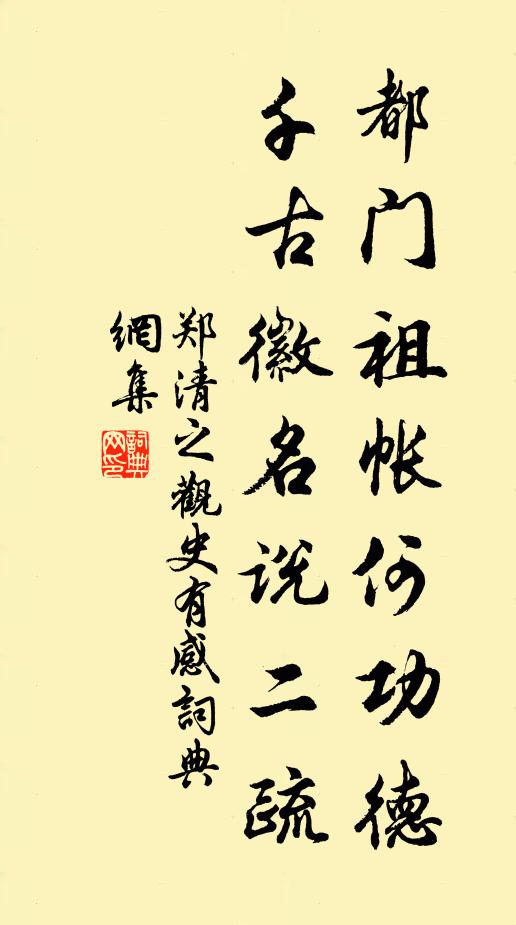 都门祖帐何功德
千古徽名说二疏
郑清之觀史有感詞典
網集
詞典
网印